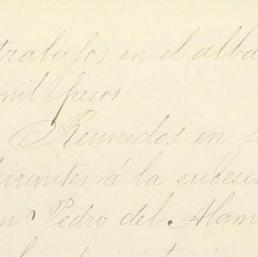 trabajos en el alba
mil pesos
Reunidos en
á la sucesi
n Pedro del Alam